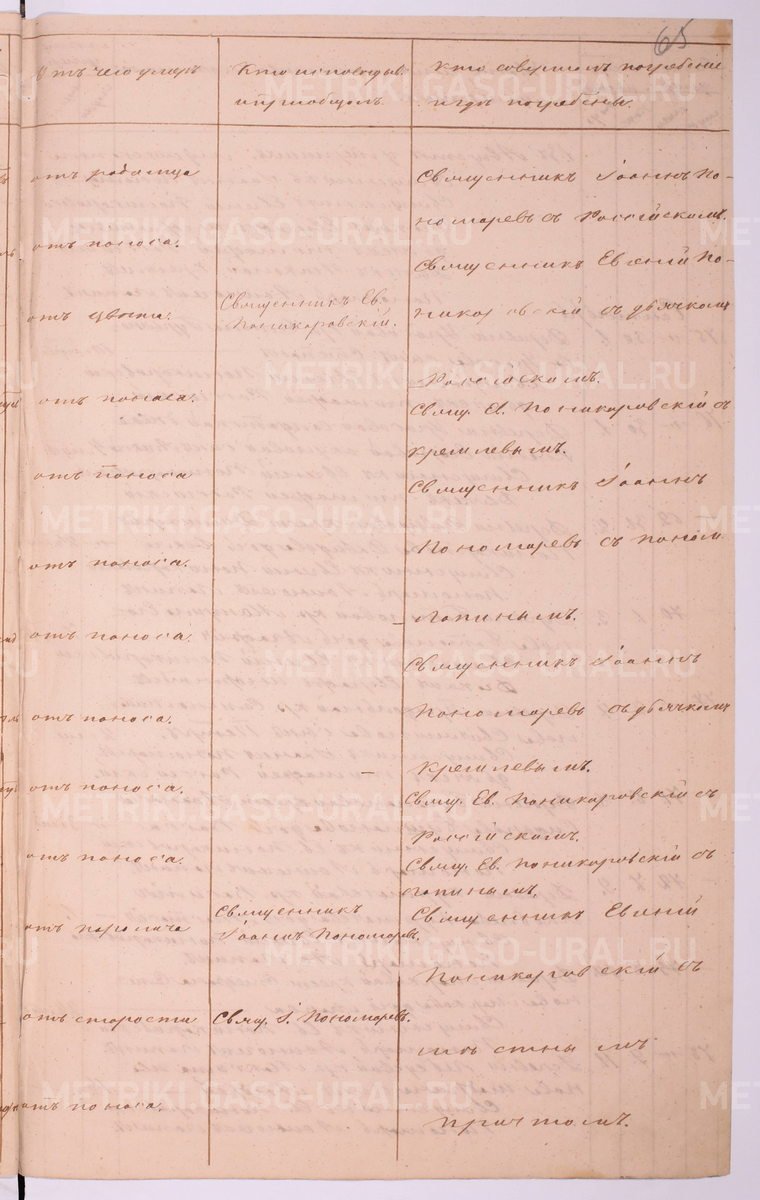 65
Отъ чего умеръ
Кто исповѣдыв.
и пріобщалъ
Кто совершалъ погребеніе
и гдѣ погребены.
отъ родимца
Священникъ Іоаннъ По-
номаревъ съ Россійскимъ.
отъ поноса.
Священникъ Евгеній По-
отъ
Священникъ Ев.
Поникаровскій.
никаровскій съ дьячкомъ
отъ поноса.
Свящ. Ев. Поникаровскій съ
Кремлевымъ.
отъ поноса
Священникъ Іоаннъ
Пономаревъ съ поном.
отъ поноса.
Топинымъ.
отъ поноса.
Священникъ Іоаннъ
отъ поноса.
Пономаревъ съ дьячкомъ
Кремлевымъ.
отъ поноса.
Свящ. Ев. Поникаровскій съ
Россійскимъ.
отъ поноса.
Свящ. Ев. Поникаровскій съ
отъ паралича
Священникъ
Іоаннъ Пономаревъ.
Священникъ Евгеній
Поникаровскій съ
отъ старости
Свящ. І. Пономаревъ.
мѣстнымъ
отъ поноса.
причтомъ.
METRIKI.GASO-URAL.RU